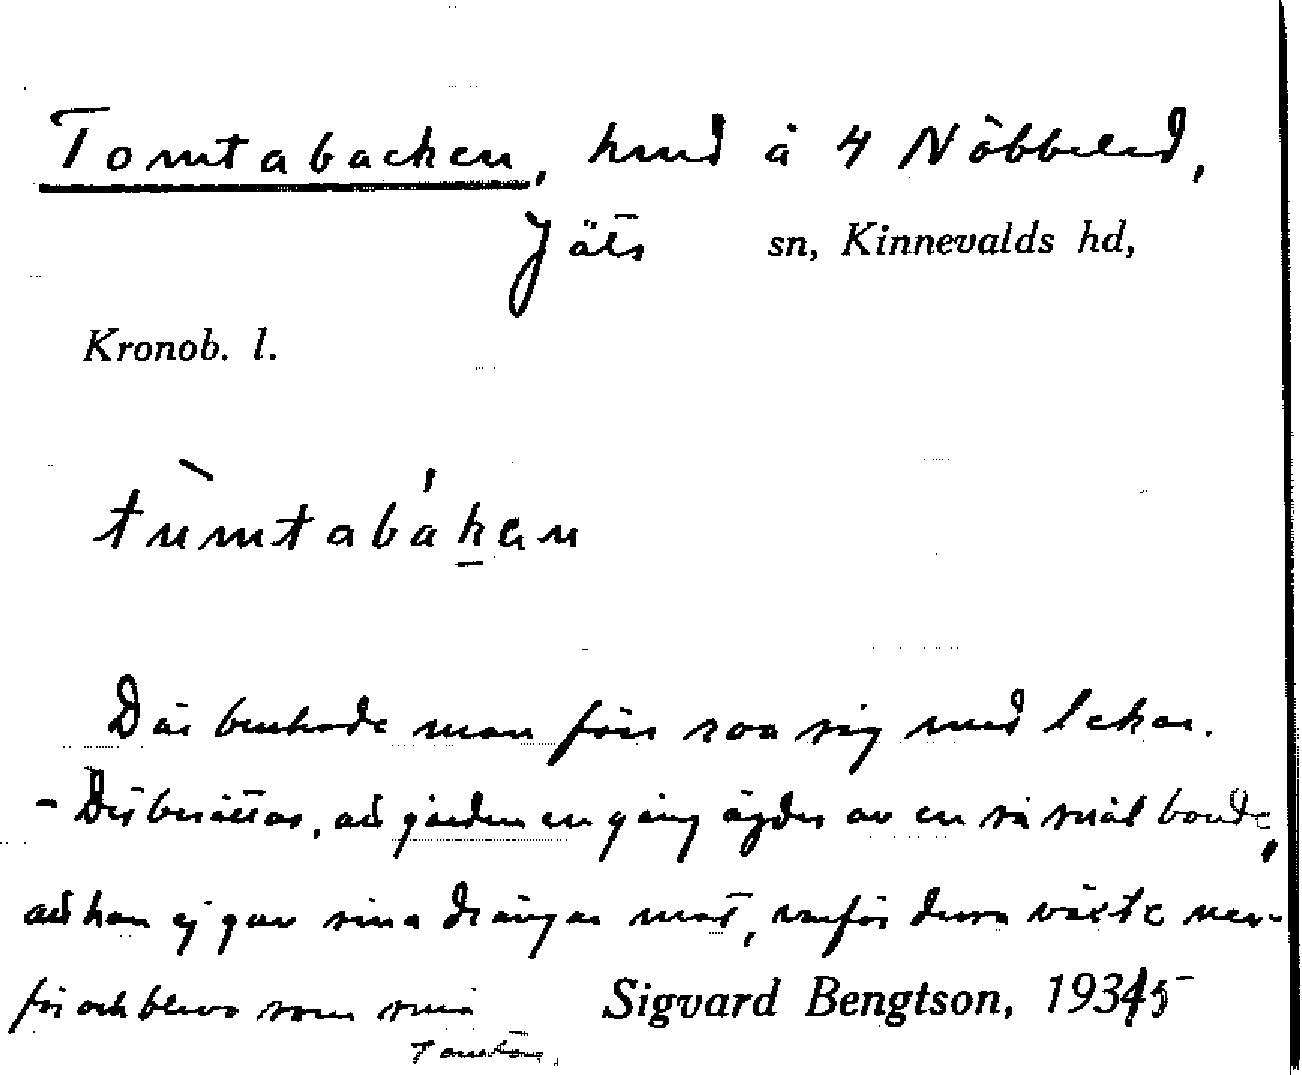 Tomtabacken, hmd å 4 Nöbbeled,
Jäts sn, Kinnevalds hd,
Kronob. l.
tùmtabákan
Där brukade man förr roa sig med lekar.
- Det berättas, att gården en gång ägdes av en så snål bonde,
att han ej gav sina drängar mat, varför dessa växte ner-
för och blevo som små
tomtar.
Sigvard Bengtson, 1935